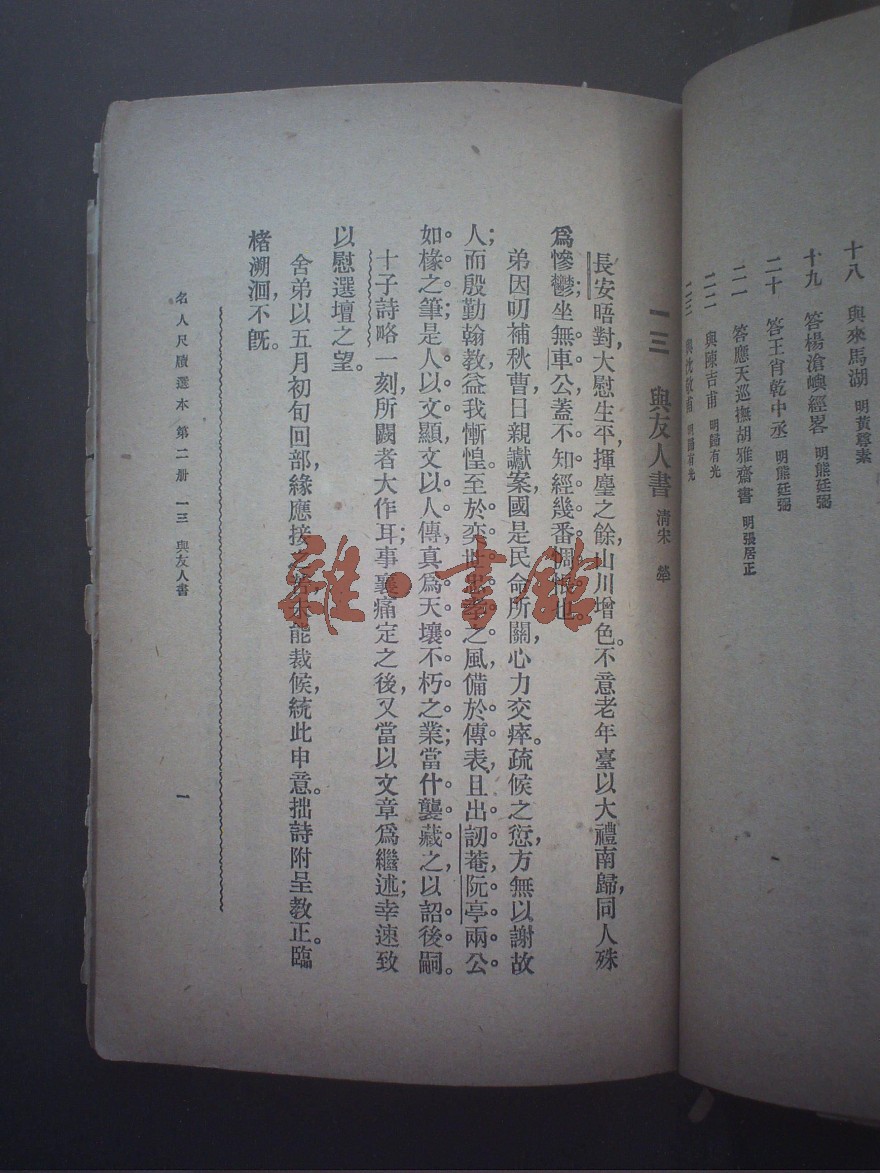 十八 與來馬湖 明黃尊素
十九 答楊滄嶼經畧 明熊廷弼
二十 答王肖乾中丞 明熊廷弼
二一 答應天巡撫胡雅齋書 明張居正
二二 與陳吉甫 明歸有光
二三 與沈敬甫 明歸有光
一三 與友人書 清宋犖
長安晤對,大慰生平,揮麈之餘,山川增色。不意老年臺以大禮南歸,同人殊
爲慘鬱;坐無車公,蓋不知經幾番惆悵也。
弟因叨補秋曹,日親讞案,國是民命所關,心力交瘁。疏候之愆,方無以謝故
人;而殷勤翰教,益我慚惶。至於奕世忠孝之風,備於傳表,且出訒菴阮亭兩公
如椽之筆;是人以文顯,文以人傳,真爲天壤不朽之業;當什襲藏之,以詔後嗣。
十子詩略一刻,所闕者大作耳;事襄痛定之後,又當以文章爲繼述;幸速致
以慰選壇之望。
舍弟以五月初旬回部,緣應接之苦,不能裁候,統此申意。拙詩附呈教正。臨
楮溯洄,不既。
名人尺牘選本 第二册 一三 與友人書
一
雜·書館